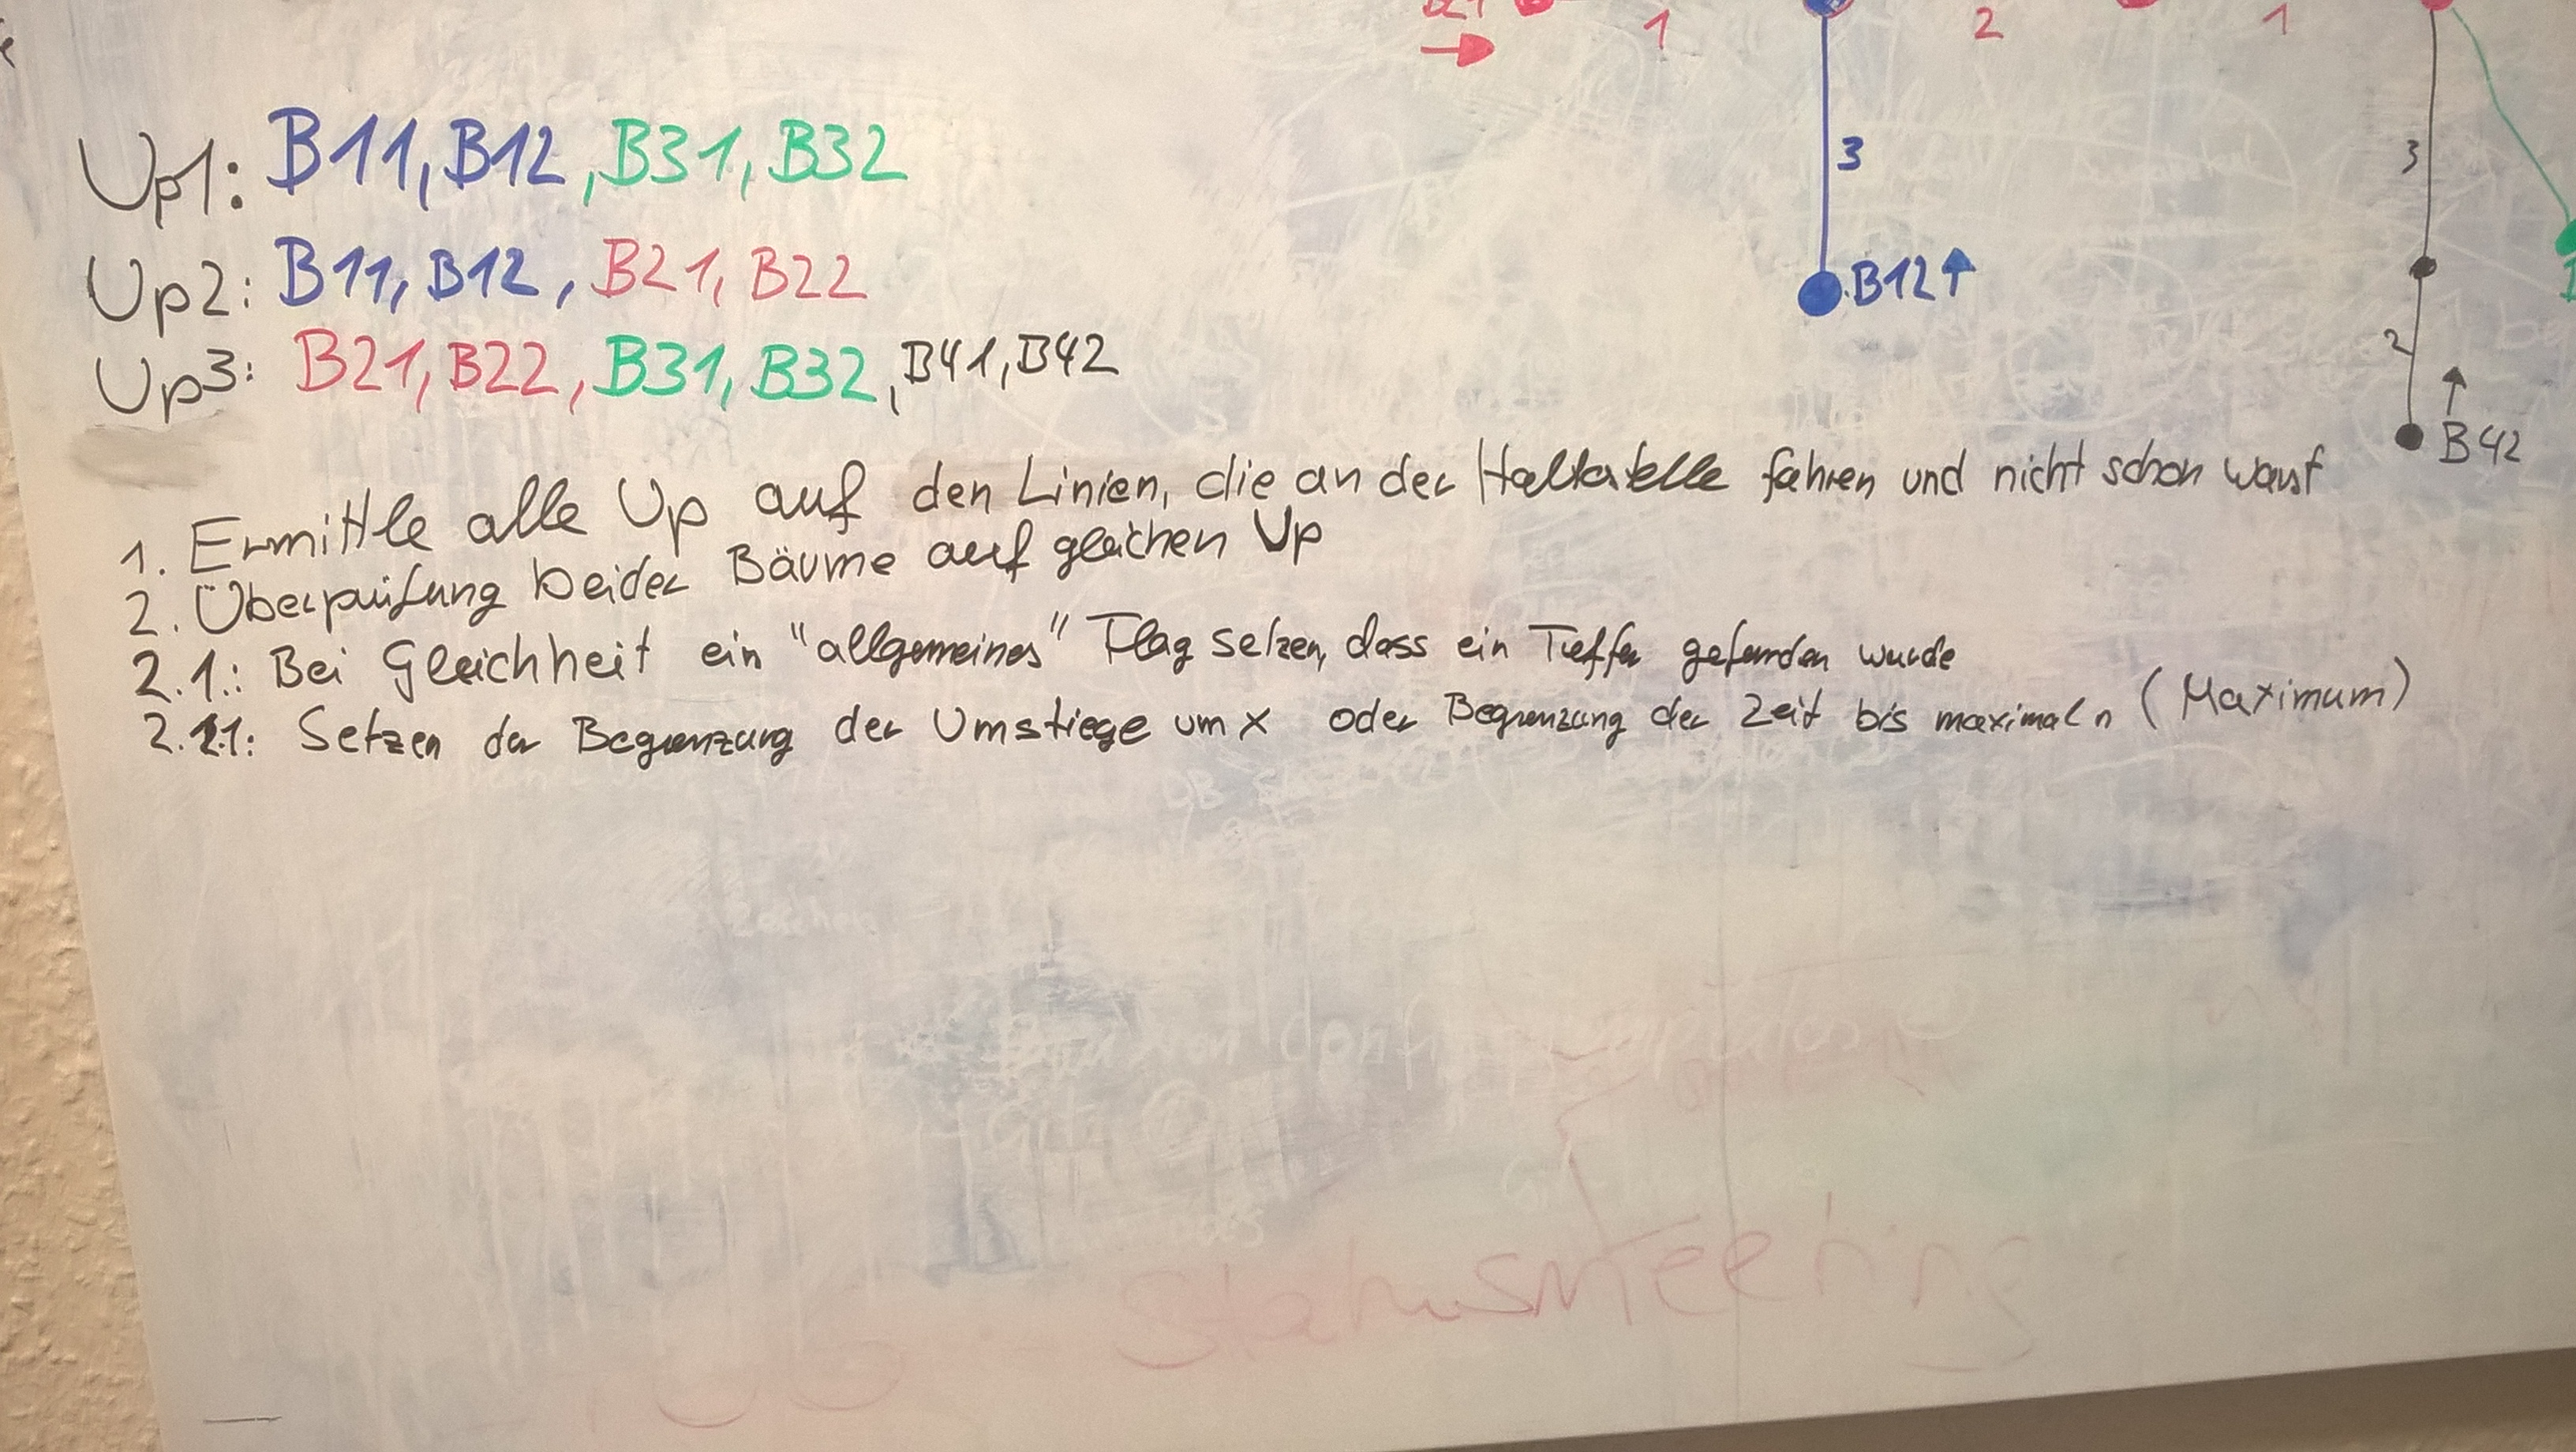 B21
1
2
1
Up1: B11, B12, B31, B32
3
3
Up2: B11, B12, B21, B22
B12↑
Up3: B21, B22, B31, B32, B41, B42
2
B42
1. Ermittle alle Up auf den Linien, die an der Haltestelle fahren und nicht schon warst
2. Überprüfung beider Bäume auf gleichen Up
2.1.: Bei Gleichheit ein "allgemeines" Flag setzen, dass ein Treffer gefunden wurde
2.1.1: Setzen der Begrenzung der Umstiege um x oder Begrenzung der Zeit bis maximal n (Maximum)
Statusmeeting